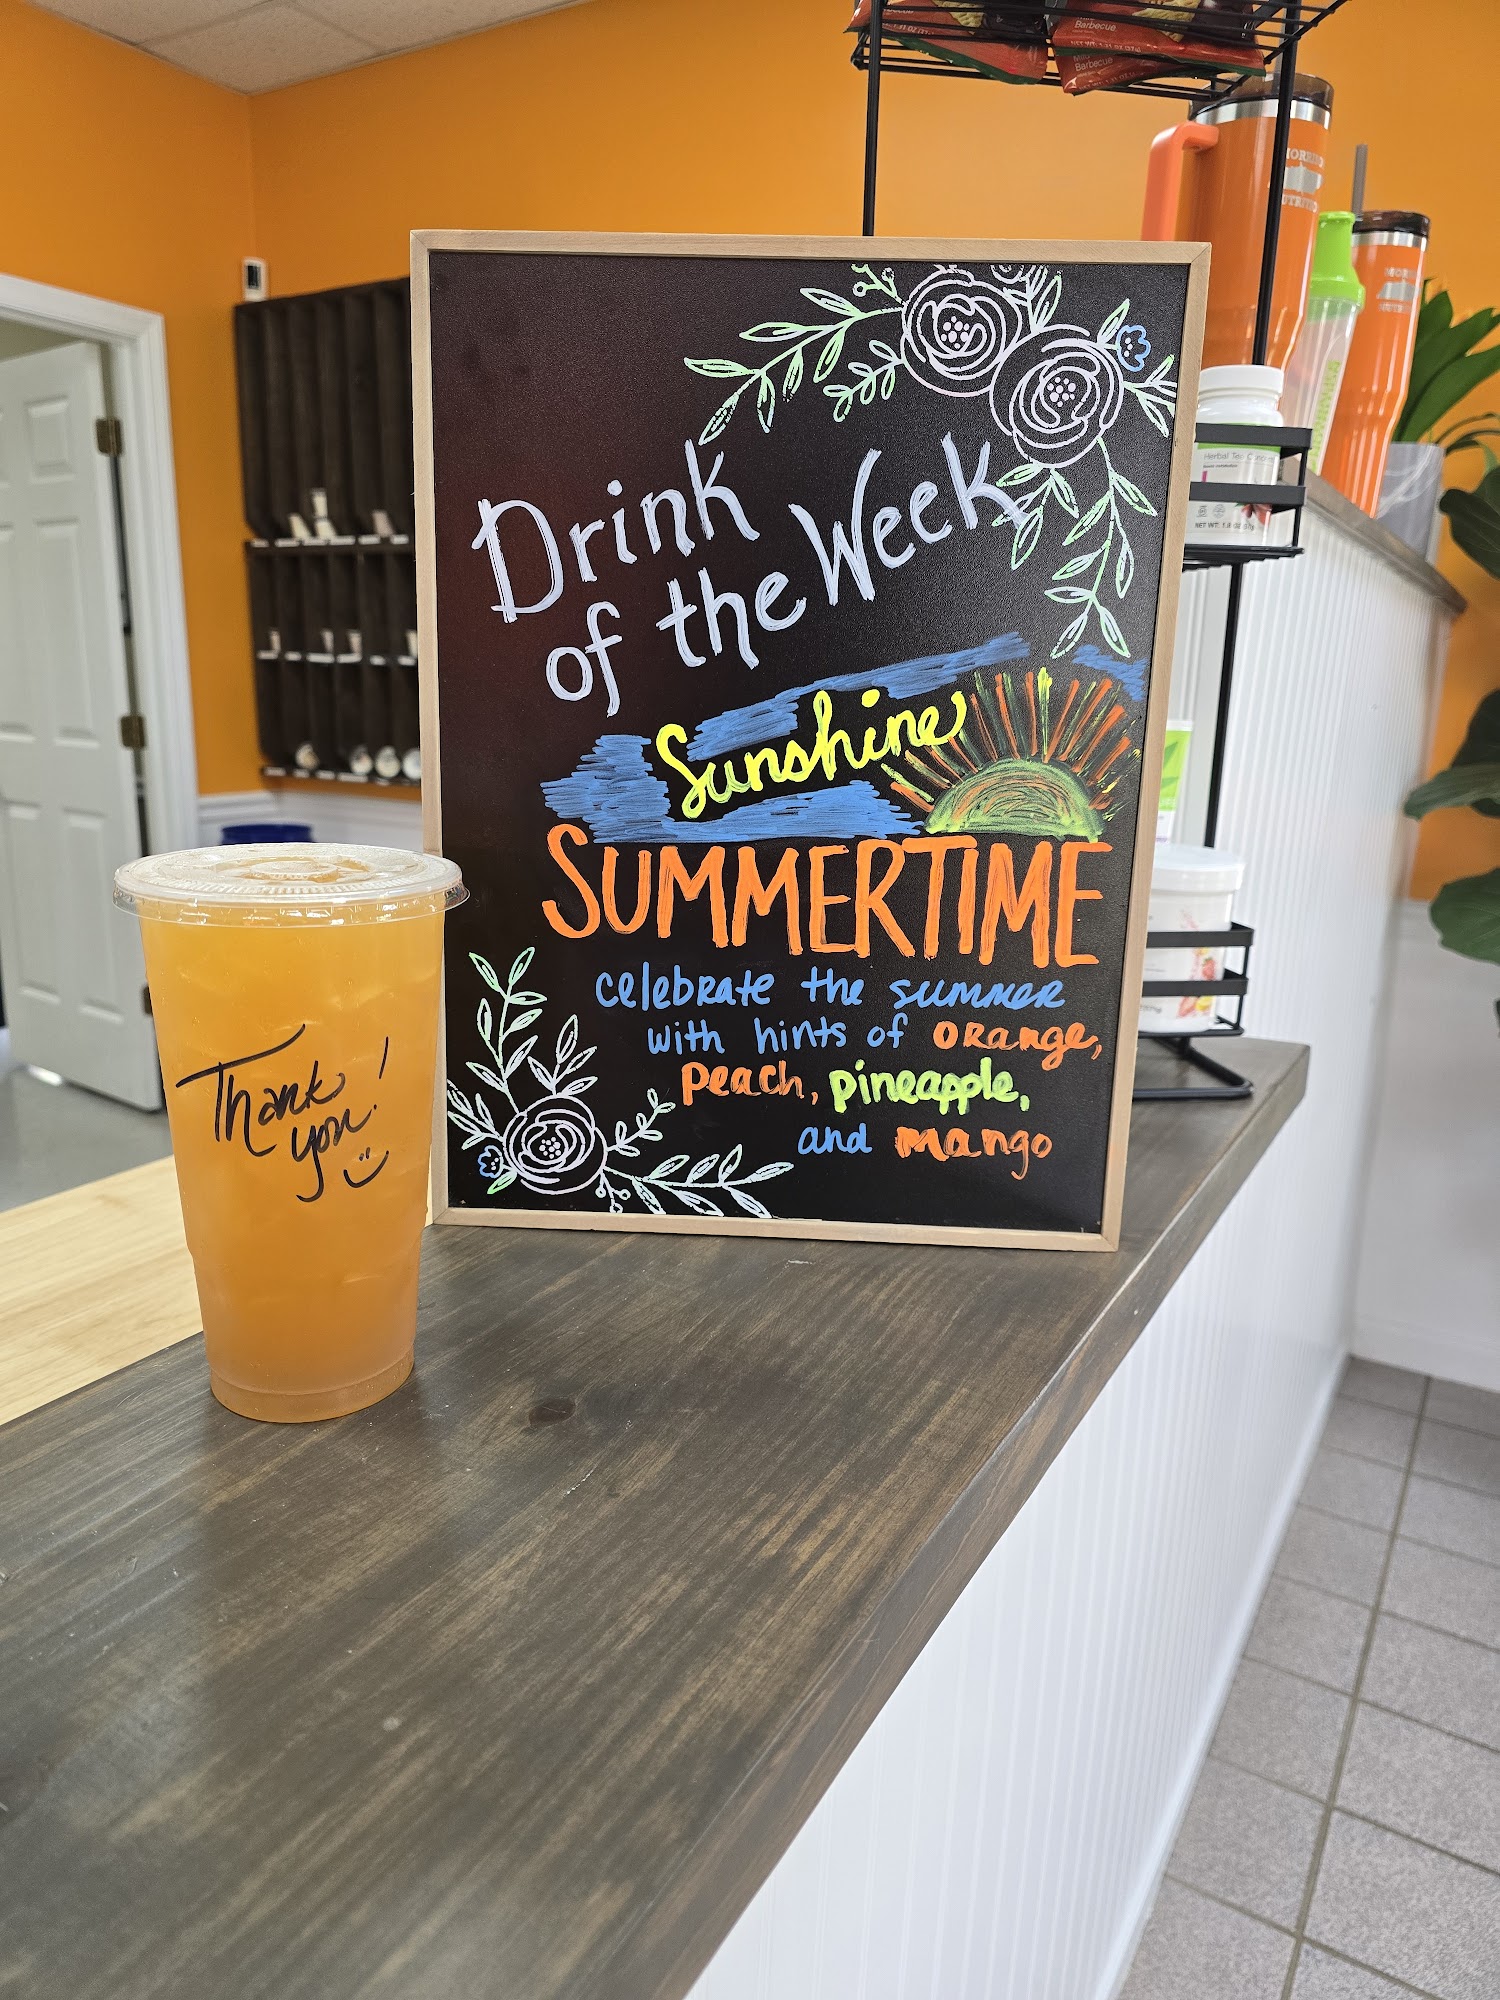 Barbecue
Barbecue
Drink
of the Week
Sunshine
SUMMERTIME
celebrate the summer
with hints of orange,
peach, pineapple,
and mango
Thank
you! :)
Herbal Tea
NET WT.